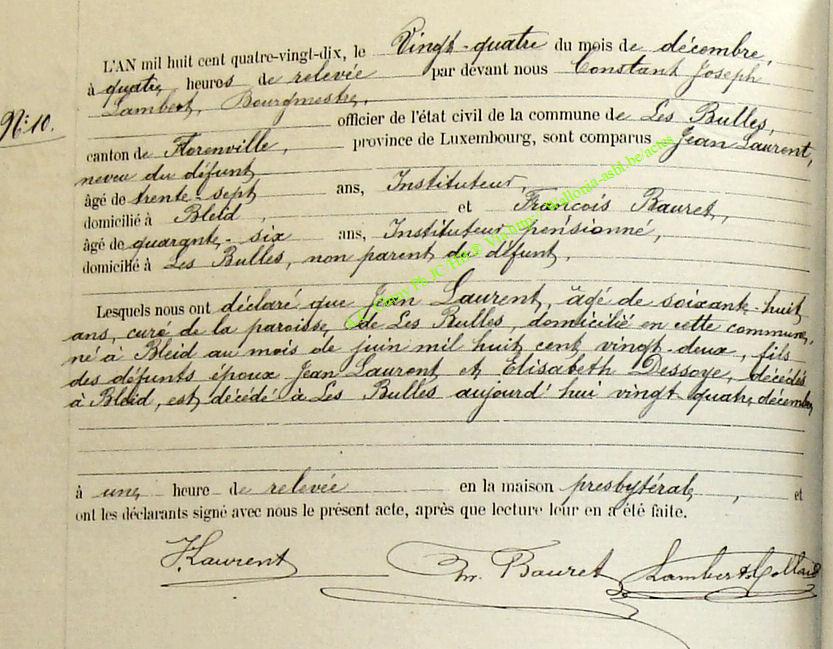 L'AN mil huit cent quatre-vingt-dix, le Vingt-quatre du mois de décembre,
à quatre heures de relevée par devant nous Constant Joseph
Lambert, Bourgmestre,
N° 10.
officier de l'état civil de la commune de Les Bulles,
canton de Florenville, province de Luxembourg, sont comparus Jean Laurent,
neveu du défunt
âgé de trente-sept ans, Instituteur,
domicilié à Bleid, et François Bauret,
âgé de quarante-six ans, Instituteur pensionné,
domicilié à Les Bulles, non parent du défunt,
Lesquels nous ont déclaré que Jean Laurent, âgé de soixante-huit
ans, curé de la paroisse de Les Bulles, domicilié en cette commune,
né à Bleid au mois de juin mil huit cent vingt-deux, fils
des défunts époux Jean Laurent et Elisabeth Dessoye, décédés
à Bleid, est décédé à Les Bulles aujourd'hui vingt quatre décembre
à une heure de relevée en la maison presbytérale, et
ont les déclarants signé avec nous le présent acte, après que lecture leur en a été faite.
J. Laurent Bauret Lambert